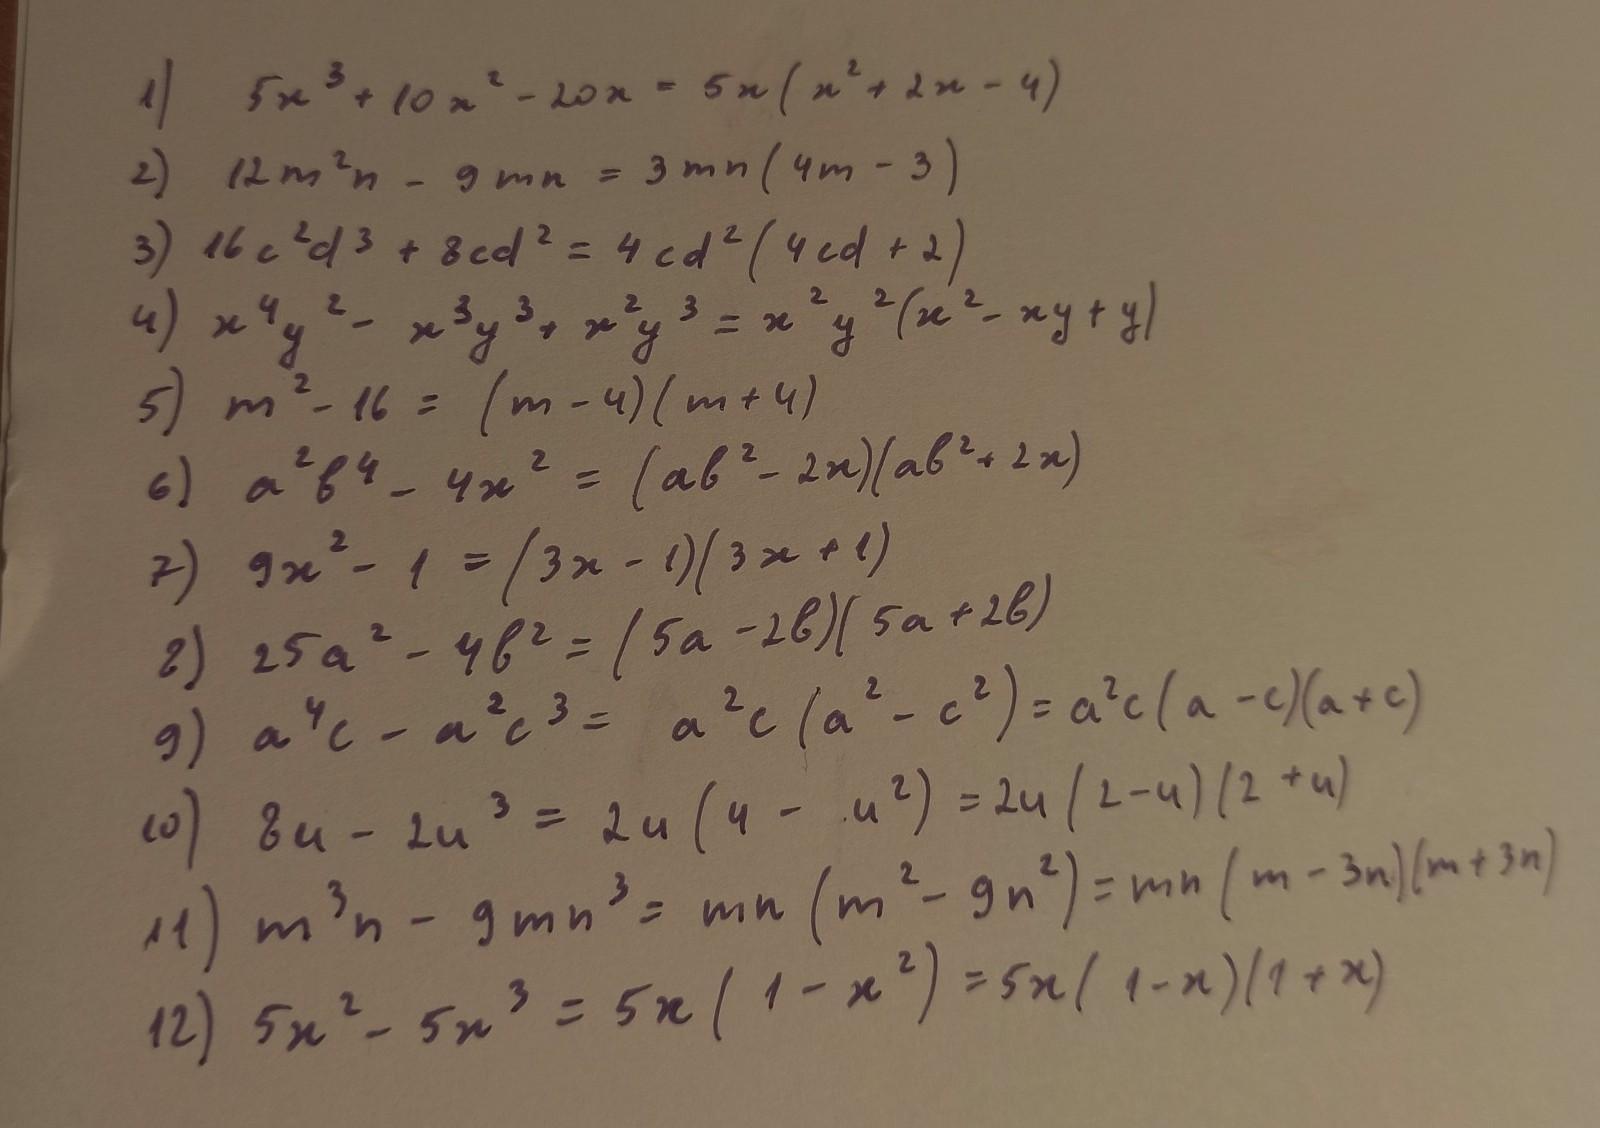 1) 5x³ + 10x² - 20x = 5x(x² + 2x - 4)
2) 12m²n - 9mn = 3mn(4m - 3)
3) 16c²d³ + 8cd² = 4cd²(4cd + 2)
4) x⁴y² - x³y³ + x²y³ = x²y²(x² - xy + y)
5) m² - 16 = (m - 4)(m + 4)
6) a²b⁴ - 4x² = (ab² - 2x)(ab² + 2x)
7) 9x² - 1 = (3x - 1)(3x + 1)
8) 25a² - 4b² = (5a - 2b)(5a + 2b)
9) a⁴c - a²c³ = a²c(a² - c²) = a²c(a - c)(a + c)
10) 8u - 2u³ = 2u(4 - u²) = 2u(2 - u)(2 + u)
11) m³n - 9mn³ = mn(m² - 9n²) = mn(m - 3n)(m + 3n)
12) 5x² - 5x³ = 5x(1 - x²) = 5x(1 - x)(1 + x)